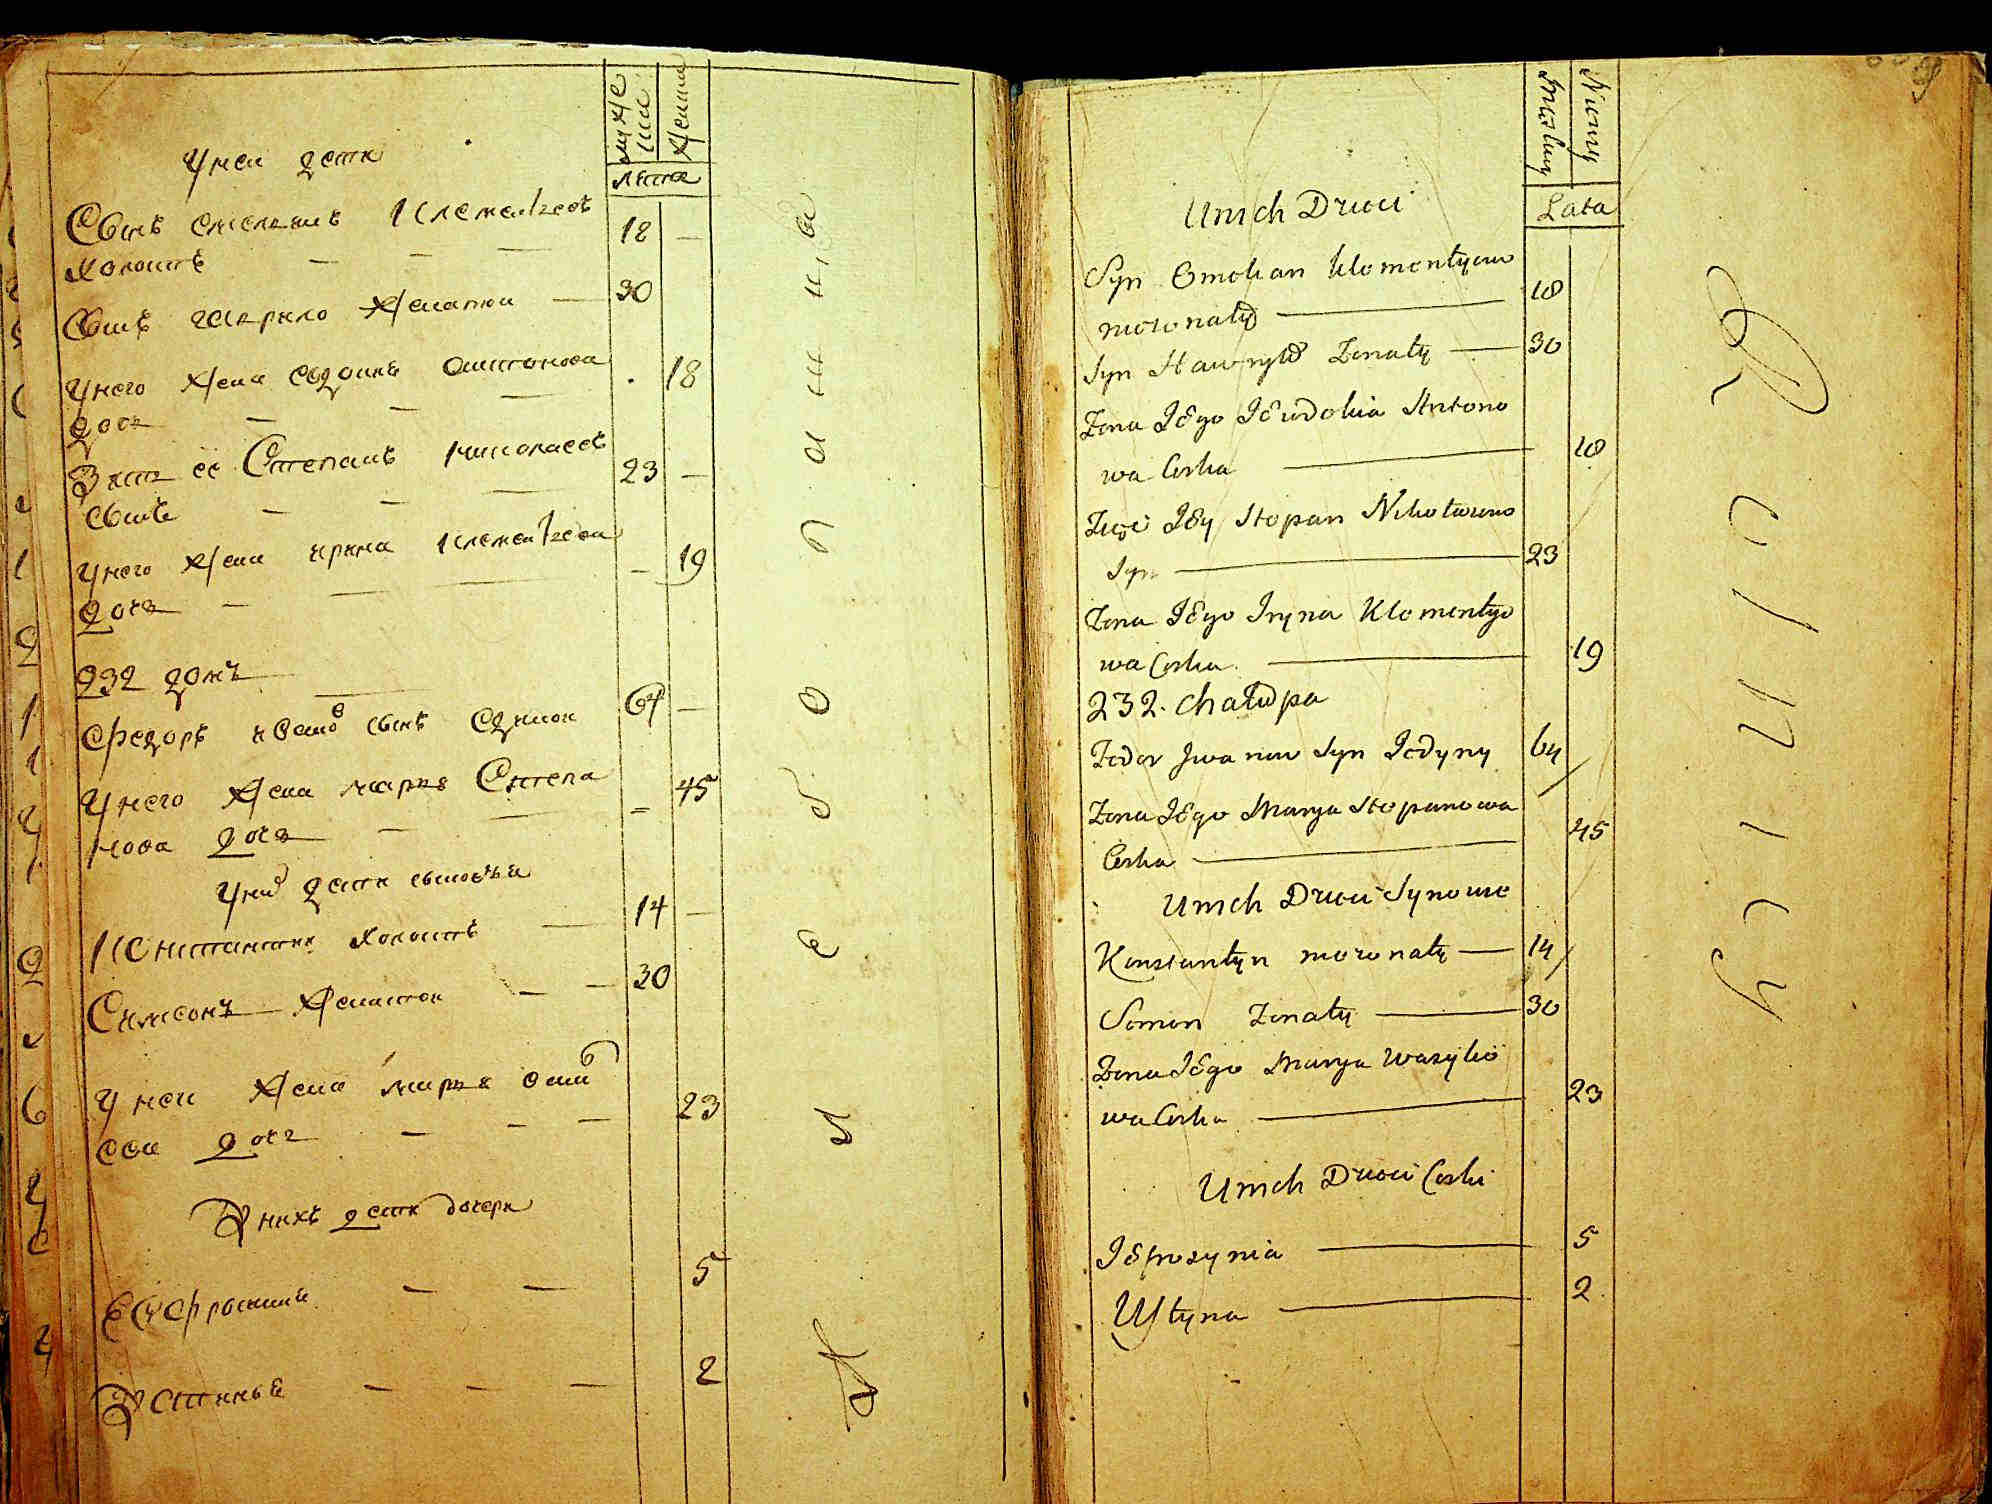 муже
ска
женска
лета
У неи дети
Сынъ емелянъ Клементеевъ 18 —
холостъ — — —
Сынъ гаврило женатои — 30
У него жена евдокиа антонова 18
дочь — — —
Зять ее Степанъ Николаевъ 23 —
сынъ — — —
У него жена ирина Клементеева — 19
дочь — — —
232 домъ
Федоръ ивано‌въ сынъ единои 64 —
У него жена марья Степа 45
нова дочь — —
У них дети сыновья
Константин холостъ — 14 —
Симеонъ женатои — — 30
У неи жена марья васи
ева дочь — — — 23
У нихъ дети дочери
Еуфросиния — — 5
Устинья — — — 2
Męskiy
Niewiy
Lata
U nich Dzieci
Syn Emelian Klementyiow
nieżonaty — 18
Syn Hawryło Żonaty — 30
Żona Jego Jewdokia Antono
wa Corka — 18
Zięć Jey Stepan Nikołaiow
Syn — 23
Żona Jego Iryna Klementyo
wa Corka — 19
232. Chałupa
Fedor Iwanow Syn Jedyny 64
Żona Jego Marya Stepanowa
Corka — 45
U nich Dzieci Synowie
Konstantyn nieżonaty — 14
Semen Żonaty — 30
Żona Jego Marya Wasylio
wa Corka — 23
U nich Dzieci Corki
Jefrozynia — 5
Ustyna — 2